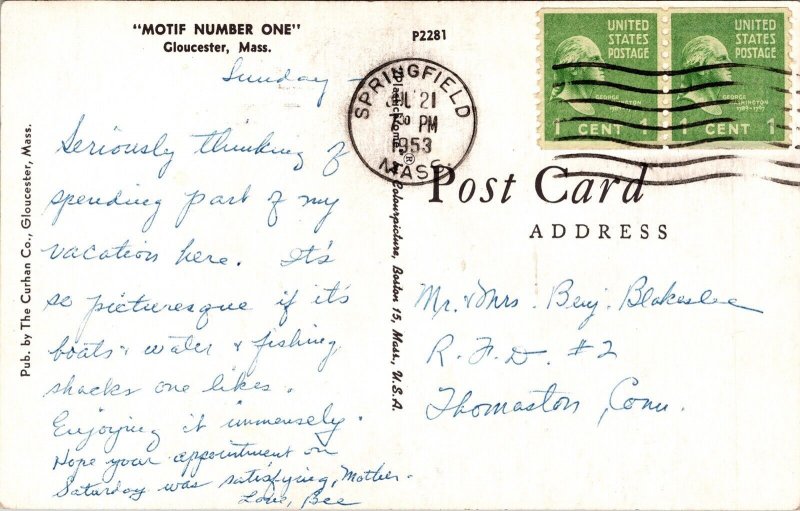 "MOTIF NUMBER ONE"
Gloucester, Mass.
P2281
Sunday -
Seriously thinking of
spending part of my
vacation here. It's
so picturesque if it's
boats & water & fishing
shacks one likes.
Enjoying it immensely.
Hope your appointment on
Saturday was satisfying, Mother.
Love, Bee
Pub. by The Curhan Co., Gloucester, Mass.
Plastichrome ® Colourpicture, Boston 15, Mass., U.S.A.
SPRINGFIELD
JUL 21
7 30 PM
1953
MASS.
UNITED
STATES
POSTAGE
GEORGE
WASHINGTON
1 CENT 1
UNITED
STATES
POSTAGE
GEORGE
WASHINGTON
1789-1797
1 CENT 1
Post Card
ADDRESS
Mr. & Mrs. Benj. Blakeslee
R.F.D. #2
Thomaston, Conn.